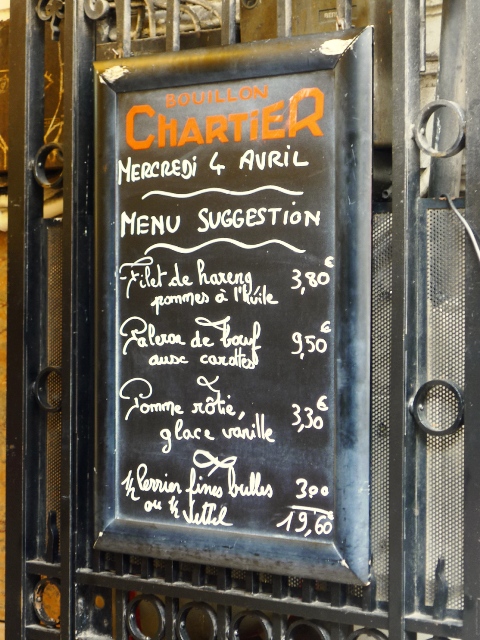 BOUILLON
CHARTIER
MERCREDI 4 AVRIL
MENU SUGGESTION
Filet de hareng 3,80€
pommes à l'huile
Paleron de bœuf 9,50€
aux carottes
Pomme rôtie, 3,30€
glace vanille
½ Perrier fines bulles 3,00
ou ½ Vittel 19,60€